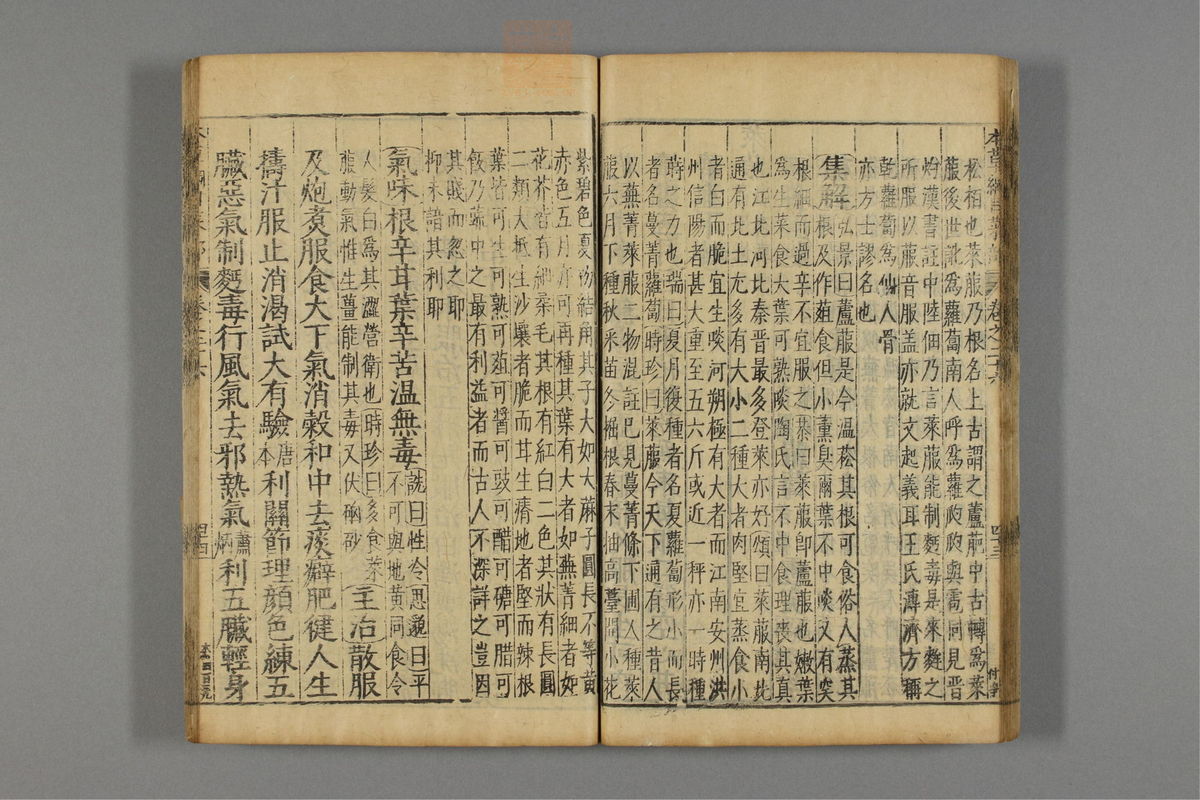 松相也萊菔乃根名上古謂之蘆萉中古轉爲萊
菔後世訛爲蘿蔔南人呼爲蘿瓝瓝與雹同見晋
灼漢書註中陸佃乃言萊菔能制麪毒是來麰之
所服以菔音服盖亦就文起義耳王氏濟濟方稱
乾蘿蔔爲仙人骨
亦方士謬名也
集解弘景曰蘆菔是今温菘其根可食俗人蒸其
根及作葅食但小薰臭爾葉不中啖又有突
根細而過辛不宜服之恭曰萊菔卽蘆菔也嫩葉
爲生菜食大葉可熟啖陶氏言不中食理喪其真
也江北河北秦晋最多登萊亦好頌曰萊菔南北
通有北土尤多有大小二種大者肉堅宜蒸食小
者白而脆宜生啖河朔極有大者而江南安州洪
州信陽者甚大重至五六斤或近一秤亦一時種
蒔之力也瑞曰夏月復種者名夏蘿蔔形小而長
者名蔓菁蘿蔔時珍曰萊菔今天下通有之昔人
以蕪菁萊菔二物混註巳見蔓菁條下圃人種萊
菔六月下種秋采苗冬掘根春末抽高薹開小花
紫碧色夏初結角其子大如大蔴子圓長不等黃
赤色五月亦可再種其葉有大者如蕪菁細者如
花芥皆有細柔毛其根有紅白二色其狀有長圓
二類大抵生沙壤者脆而甘生瘠地者堅而辣根
葉皆可生可熟可葅可醬可豉可醋可糖可腊可
飯乃蔬中之最有利益者而古人不深詳之豈因
其賤而忽之耶
抑未諳其利耶
氣味根辛甘葉辛苦温無毒詵曰性冷思邈曰平
不可與地黃同食令
人髮白爲其濇營衛也時珍曰多食萊
菔動氣惟生薑能制其毒又伏硇砂
主治散服
及炮煮服食大下氣消穀和中去痰癖肥健人生
擣汁服止消渴試大有驗唐本利關節理顏色練五
臟惡氣制麪毒行風氣去邪熱氣蕭炳利五臟輕身